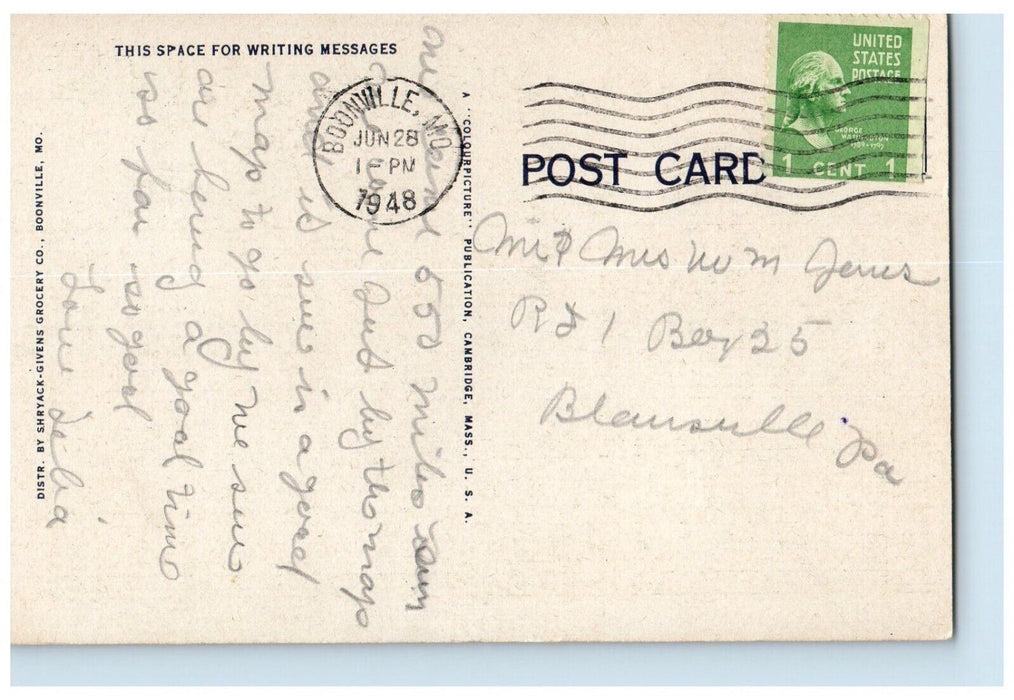 THIS SPACE FOR WRITING MESSAGES
BOONVILLE, MO.
JUN 28
1 - PM
1948
UNITED
STATES
POSTAGE
GEORGE
WASHINGTON
1789-1797
1 CENT 1
POST CARD
Mr & Mrs Wm
R d 1 Box 35
Blairsville Pa
550 miles
home Just by the map
and is sure is a good
map to go by we sure
are having a good time
so far so good
Love
A "COLOURPICTURE" PUBLICATION, CAMBRIDGE, MASS., U. S. A.
DISTR. BY SHRYACK-GIVENS GROCERY CO., BOONVILLE, MO.